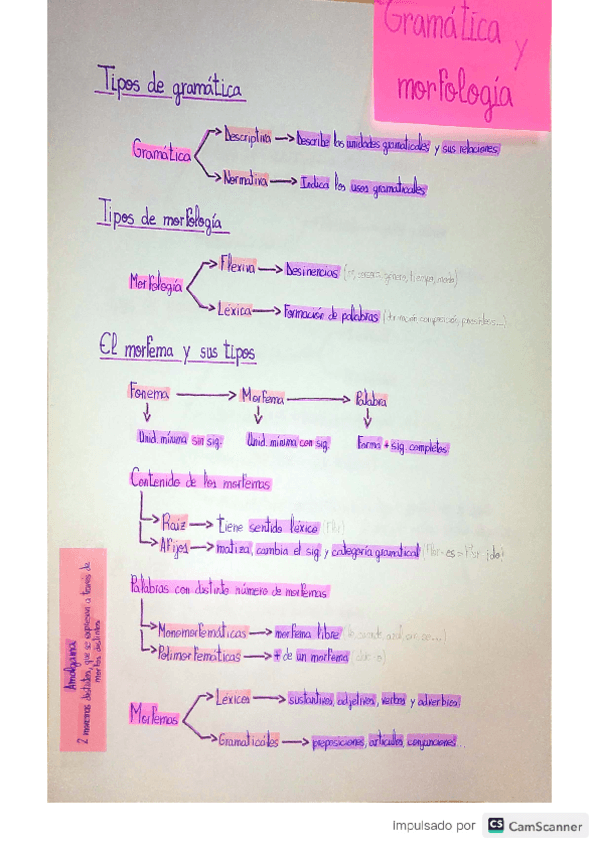 Gramática
y
morfología
Tipos de gramática
Gramática
Descriptiva → Describe las unidades gramaticales y sus relaciones
Normativa → Indica los usos gramaticales
Tipos de morfología
Morfología
Flexiva → Desinencias género, tiempo, modo)
Léxica → Formación de palabras composición,
El morfema y sus tipos
Fonema → Morfema → Palabra
Unid. mínima sin sig. Unid. mínima con sig. Forma + sig. completos
Contenido de los morfemas
Raíz → tiene sentido léxico (Flor)
Afijos → matiza, cambia el sig y categoría gramatical (Flor-es
Palabras con distinto número de morfemas
Monomorfemáticas → morfema libre
Polimorfemáticas → + de un morfema
Amalgama
2 morfemas distintos, que se expresan a través de
morfos distintos
Morfemas
Léxicos → sustantivos, adjetivos, verbos y adverbios
Gramaticales → preposiciones, artículos, conjunciones...
Impulsado por CS CamScanner